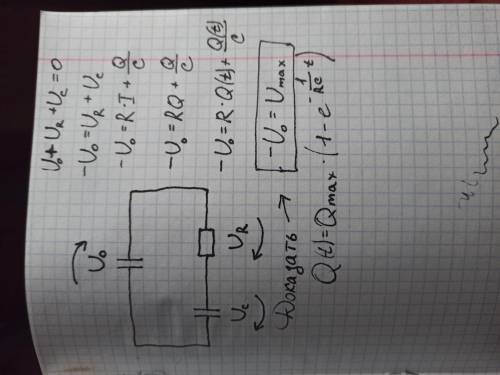 U₀ + U_R + U_C = 0
-U₀ = U_R + U_C
-U₀ = R · I + Q/C
-U₀ = RQ̇ + Q/C
-U₀ = R · Q̇(t) + Q(t)/C
-U₀ = U_max
U₀
U_R
U_C
Доказать →
Q(t) = Q_max · (1 - e^(-1/(RC) t))